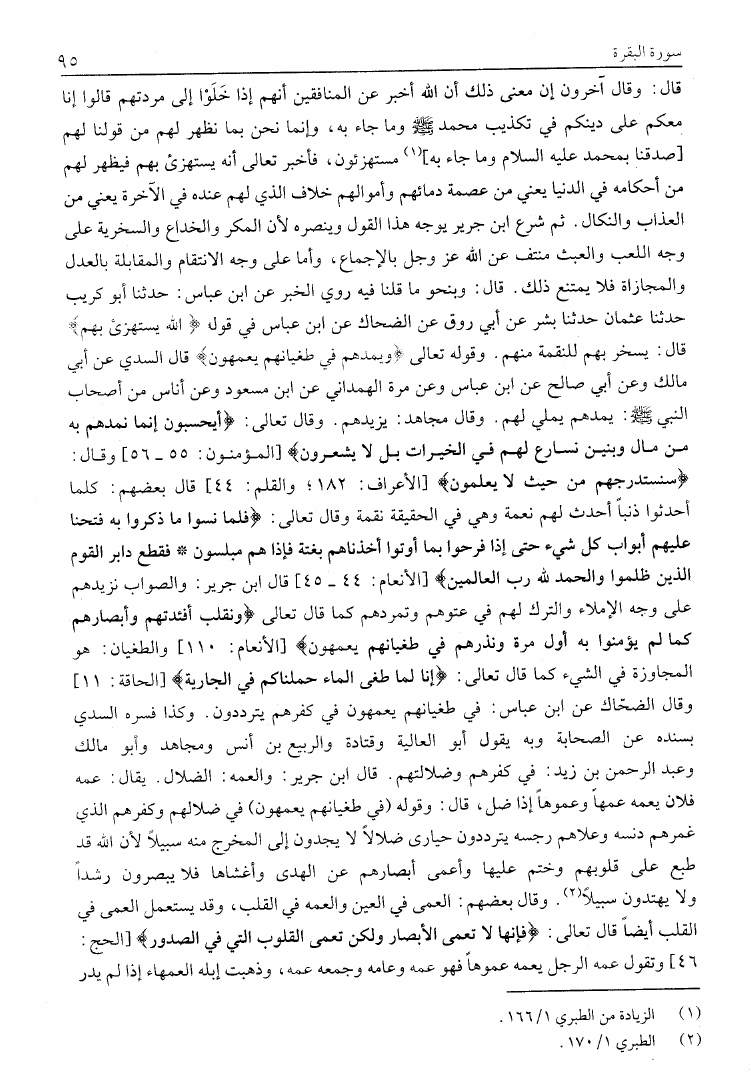 سورة البقرة ٩٥
قال: وقال آخرون إن معنى ذلك أن الله أخبر عن المنافقين أنهم إذا خَلَوْا إلى مردتهم قالوا إنا
معكم على دينكم في تكذيب محمد ﷺ وما جاء به، وإنما نحن بما نظهر لهم من قولنا لهم
[صدقنا بمحمد عليه السلام وما جاء به](١) مستهزئون، فأخبر تعالى أنه يستهزئ بهم فيظهر لهم
من أحكامه في الدنيا يعني من عصمة دمائهم وأموالهم خلاف الذي لهم عنده في الآخرة يعني من
العذاب والنكال. ثم شرع ابن جرير يوجه هذا القول وينصره لأن المكر والخداع والسخرية على
وجه اللعب والعبث منتف عن الله عز وجل بالإجماع، وأما على وجه الانتقام والمقابلة بالعدل
والمجازاة فلا يمتنع ذلك. قال: وبنحو ما قلنا فيه روي الخبر عن ابن عباس: حدثنا أبو كريب
حدثنا عثمان حدثنا بشر عن أبي روق عن الضحاك عن ابن عباس في قوله ﴿ الله يستهزئ بهم﴾
قال: يسخر بهم للنقمة منهم. وقوله تعالى ﴿ويمدهم في طغيانهم يعمهون﴾ قال السدي عن أبي
مالك وعن أبي صالح عن ابن عباس وعن مرة الهمداني عن ابن مسعود وعن أناس من أصحاب
النبي ﷺ: يمدهم يملي لهم. وقال مجاهد: يزيدهم. وقال تعالى: ﴿أيحسبون إنما نمدهم به
من مال وبنين نسارع لهم في الخيرات بل لا يشعرون﴾ [المؤمنون: ٥٥ ـ ٥٦] وقال:
﴿سنستدرجهم من حيث لا يعلمون﴾ [الأعراف: ١٨٢؛ والقلم: ٤٤] قال بعضهم: كلما
أحدثوا ذنباً أحدث لهم نعمة وهي في الحقيقة نقمة وقال تعالى: ﴿فلما نسوا ما ذكروا به فتحنا
عليهم أبواب كل شيء حتى إذا فرحوا بما أوتوا أخذناهم بغتة فإذا هم مبلسون * فقطع دابر القوم
الذين ظلموا والحمد لله رب العالمين﴾ [الأنعام: ٤٤ ـ ٤٥] قال ابن جرير: والصواب نزيدهم
على وجه الإملاء والترك لهم في عتوهم وتمردهم كما قال تعالى ﴿ونقلب أفئدتهم وأبصارهم
كما لم يؤمنوا به أول مرة ونذرهم في طغيانهم يعمهون﴾ [الأنعام: ١١٠] والطغيان: هو
المجاوزة في الشيء كما قال تعالى: ﴿إنا لما طغى الماء حملناكم في الجارية﴾ [الحاقة: ١١]
وقال الضحّاك عن ابن عباس: في طغيانهم يعمهون في كفرهم يترددون. وكذا فسره السدي
بسنده عن الصحابة وبه يقول أبو العالية وقتادة والربيع بن أنس ومجاهد وأبو مالك
وعبد الرحمن بن زيد: في كفرهم وضلالتهم. قال ابن جرير: والعمه: الضلال. يقال: عمه
فلان يعمه عمهاً وعموهاً إذا ضل، قال: وقوله (في طغيانهم يعمهون) في ضلالهم وكفرهم الذي
غمرهم دنسه وعلاهم رجسه يترددون حيارى ضلالاً لا يجدون إلى المخرج منه سبيلاً لأن الله قد
طبع على قلوبهم وختم عليها وأعمى أبصارهم عن الهدى وأغشاها فلا يبصرون رشداً
ولا يهتدون سبيلاً(٢). وقال بعضهم: العمى في العين والعمه في القلب، وقد يستعمل العمى في
القلب أيضاً قال تعالى: ﴿فإنها لا تعمى الأبصار ولكن تعمى القلوب التي في الصدور﴾ [الحج:
٤٦] وتقول عمه الرجل يعمه عموهاً فهو عمه وعامه وجمعه عمه، وذهبت إبله العمهاء إذا لم يدر
(١) الزيادة من الطبري ١/ ١٦٦.
(٢) الطبري ١/ ١٧٠.